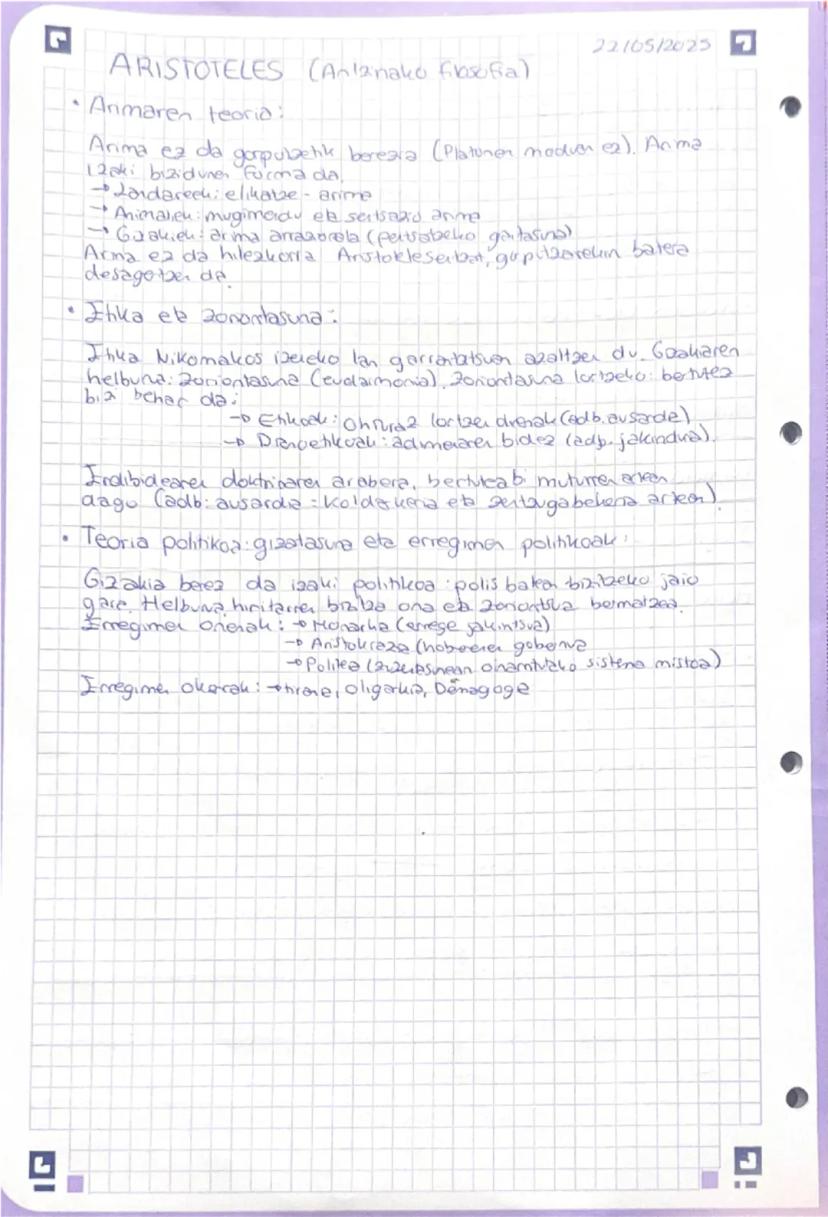 22/05/2025
ARISTOTELES (Antzinako filosofia)
• Arimaren teoria:
Arima ez da gorputzetik berezia (Platonen moduan ez). Arima
izaki bizidunen forma da.
→ Landareek: elikatze-arima
→ Animaliek: mugimendu eta sentsazio arima
→ Gizakiek: arima arrazionala (pentsatzeko gaitasuna)
Arima ez da hilezkorra Aristotelesentzat, gorputzarekin batera
desagertzen da.
• Etika eta zoriontasuna:
Etika Nikomakos izeneko lan garrantzitsuan azaltzen du. Gizakiaren
helburua: zoriontasuna (eudaimonia). Zoriontasuna lortzeko: bertutez
bizi behar da:
→ Etikoak: ohituraz lortzen direnak (adb. ausardia)
→ Dianoetikoak: adimenaren bidez (adb. jakinduria).
Erdibidearen doktrinaren arabera, bertutea bi muturren artean
dago (adb: ausardia = koldarkeria eta zentzugabekeria artean).
• Teoria politikoa: gizatasuna eta erregimen politikoak:
Gizakia berez da izaki politikoa: polis batean bizitzeko jaio
gara. Helburua, hiritarren bizitza ona eta zoriontsua bermatzea.
Erregimen onenak: → Monarkia (errege jakintsua)
→ Aristokrazia (hoberenen gobernua
→ Politeia (zuzentasunean oinarritutako sistema mistoa)
Erregimen okerrak: → tirania, Oligarkia, Demagogia